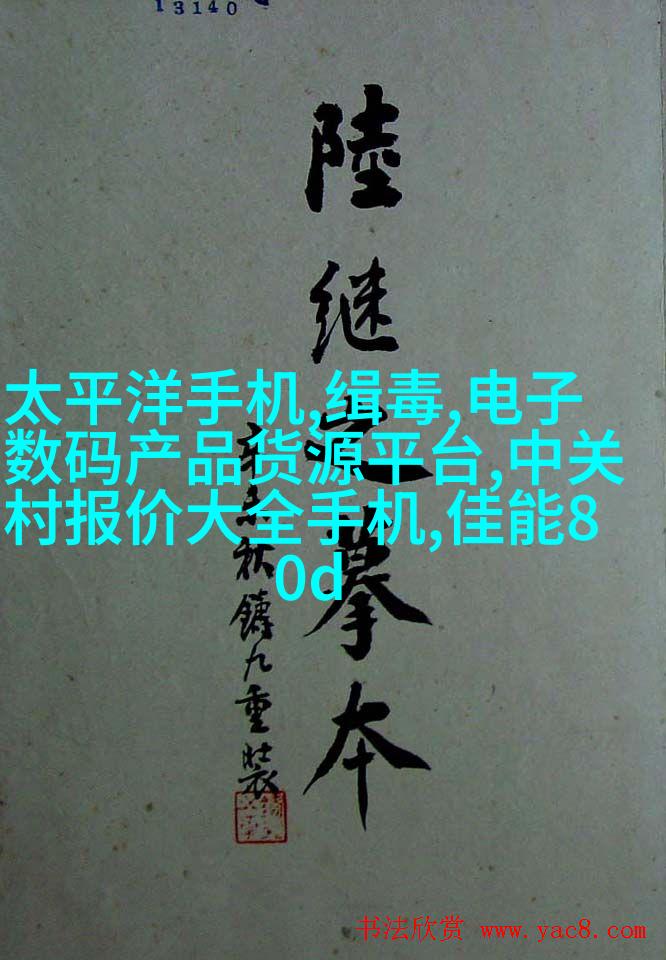 13140
陸继之摹本
辛未秋鑄九重装
太平洋手机,缉毒,电子
数码产品货源平台,中关
村报价大全手机,佳能8
0d
书法欣赏 www.yac8.com